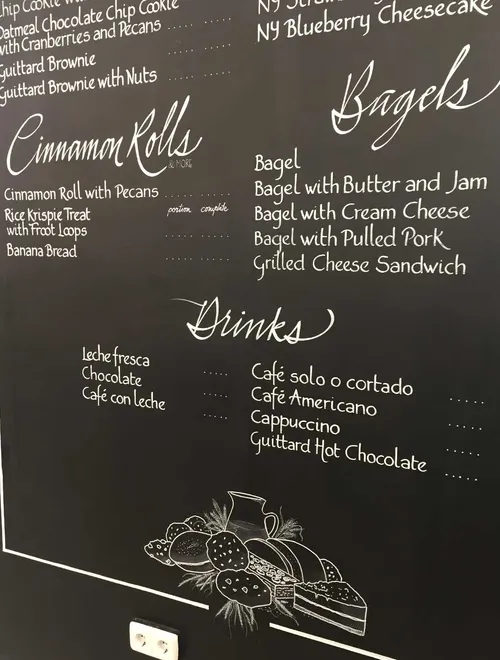 Chip Cookie
Oatmeal Chocolate Chip Cookie
with Cranberries and Pecans
Guittard Brownie
Guittard Brownie with Nuts
NY
NY Blueberry Cheesecake
Cinnamon Rolls
& MORE
Cinnamon Roll with Pecans
portion complete
Rice Krispie Treat
with Froot Loops
Banana Bread
Bagels
Bagel
Bagel with Butter and Jam
Bagel with Cream Cheese
Bagel with Pulled Pork
Grilled Cheese Sandwich
Drinks
Leche fresca
Chocolate
Café con leche
Café solo o cortado
Café Americano
Cappuccino
Guittard Hot Chocolate